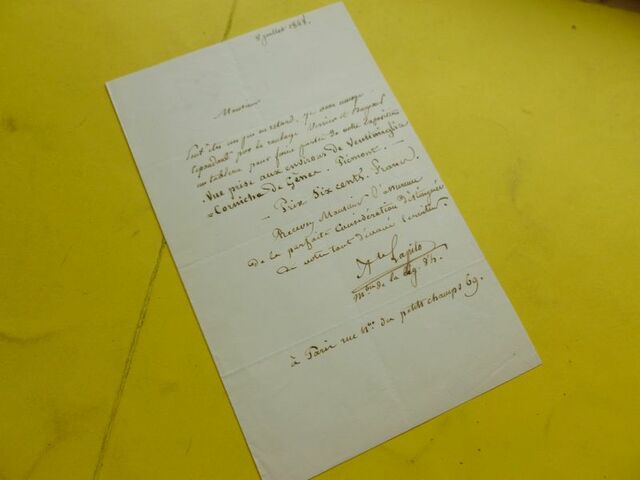 8 juillet 1848.
Monsieur
Peut être un peu en retard, je vous envoye
cependant par le roulage
un tableau pour faire partie de votre Exposition
Vue prise aux environs de Ventimiglia
Corniche de Gênes. Piémont. —
— Prix Six cents Francs.
Recevez Monsieur l'assurance
de la parfaite Considération Distinguée
de votre tout dévoué Serviteur
Ate Lapito
mbre de la Lég. d'h.
à Paris rue Nve des petits champs 69.